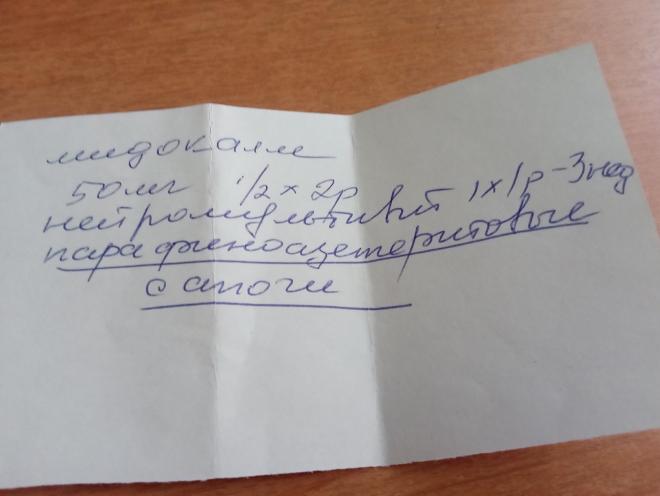 мидокалм
50мг 1/2 x 2р
нейромультивит 1x1р-3нед
парафиноазетеритовые
сапоги